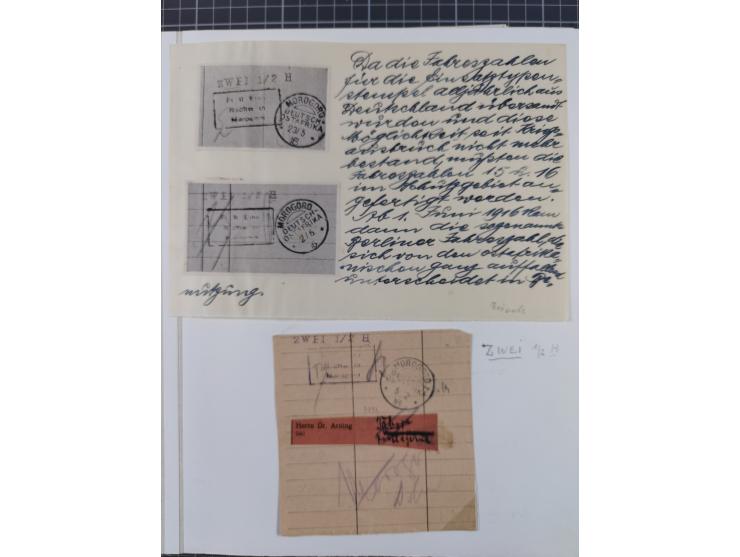 ZWEI 1/2 H
MOROGORO
DEUTSCH-
OSTAFRIKA
ZWEI 1/2 H
MOROGORO
DEUTSCH-
OSTAFRIKA
Da die Jahreszahlen
für die Einsatztypen-
stempel alljährlich aus
Deutschland übersandt
wurden und diese
Möglichkeit seit Kriegs-
ausbruch nicht mehr
bestand, mußten die
Jahreszahlen 15 u. 16
im Schutzgebiet an-
gefertigt werden.
Ab 1. Juni 1916 kam
dann die sogenannte
Berliner Jahreszahl, die
sich von den ostafrika-
nischen ganz auffallend
unterscheidet in Be-
nutzung.
ZWEI 1/2 H
ZWEI 1/2 H
MOROGORO
Herrn Dr. Arning
Tabora